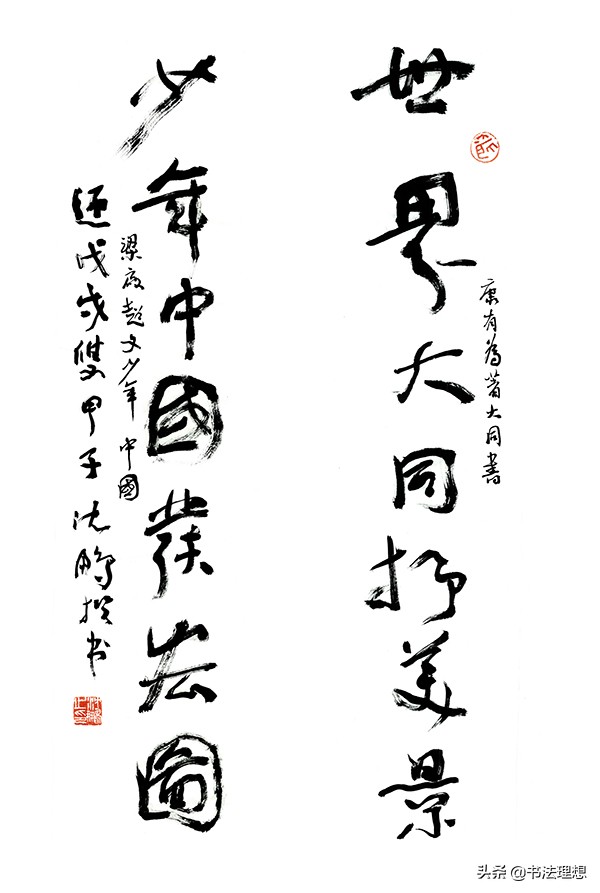 世界大同抒美景
康有為著大同書
少年中國發宏圖
梁啟超文少年中國
戊戌雙甲子沈鵬撰书
头条 @书法理想